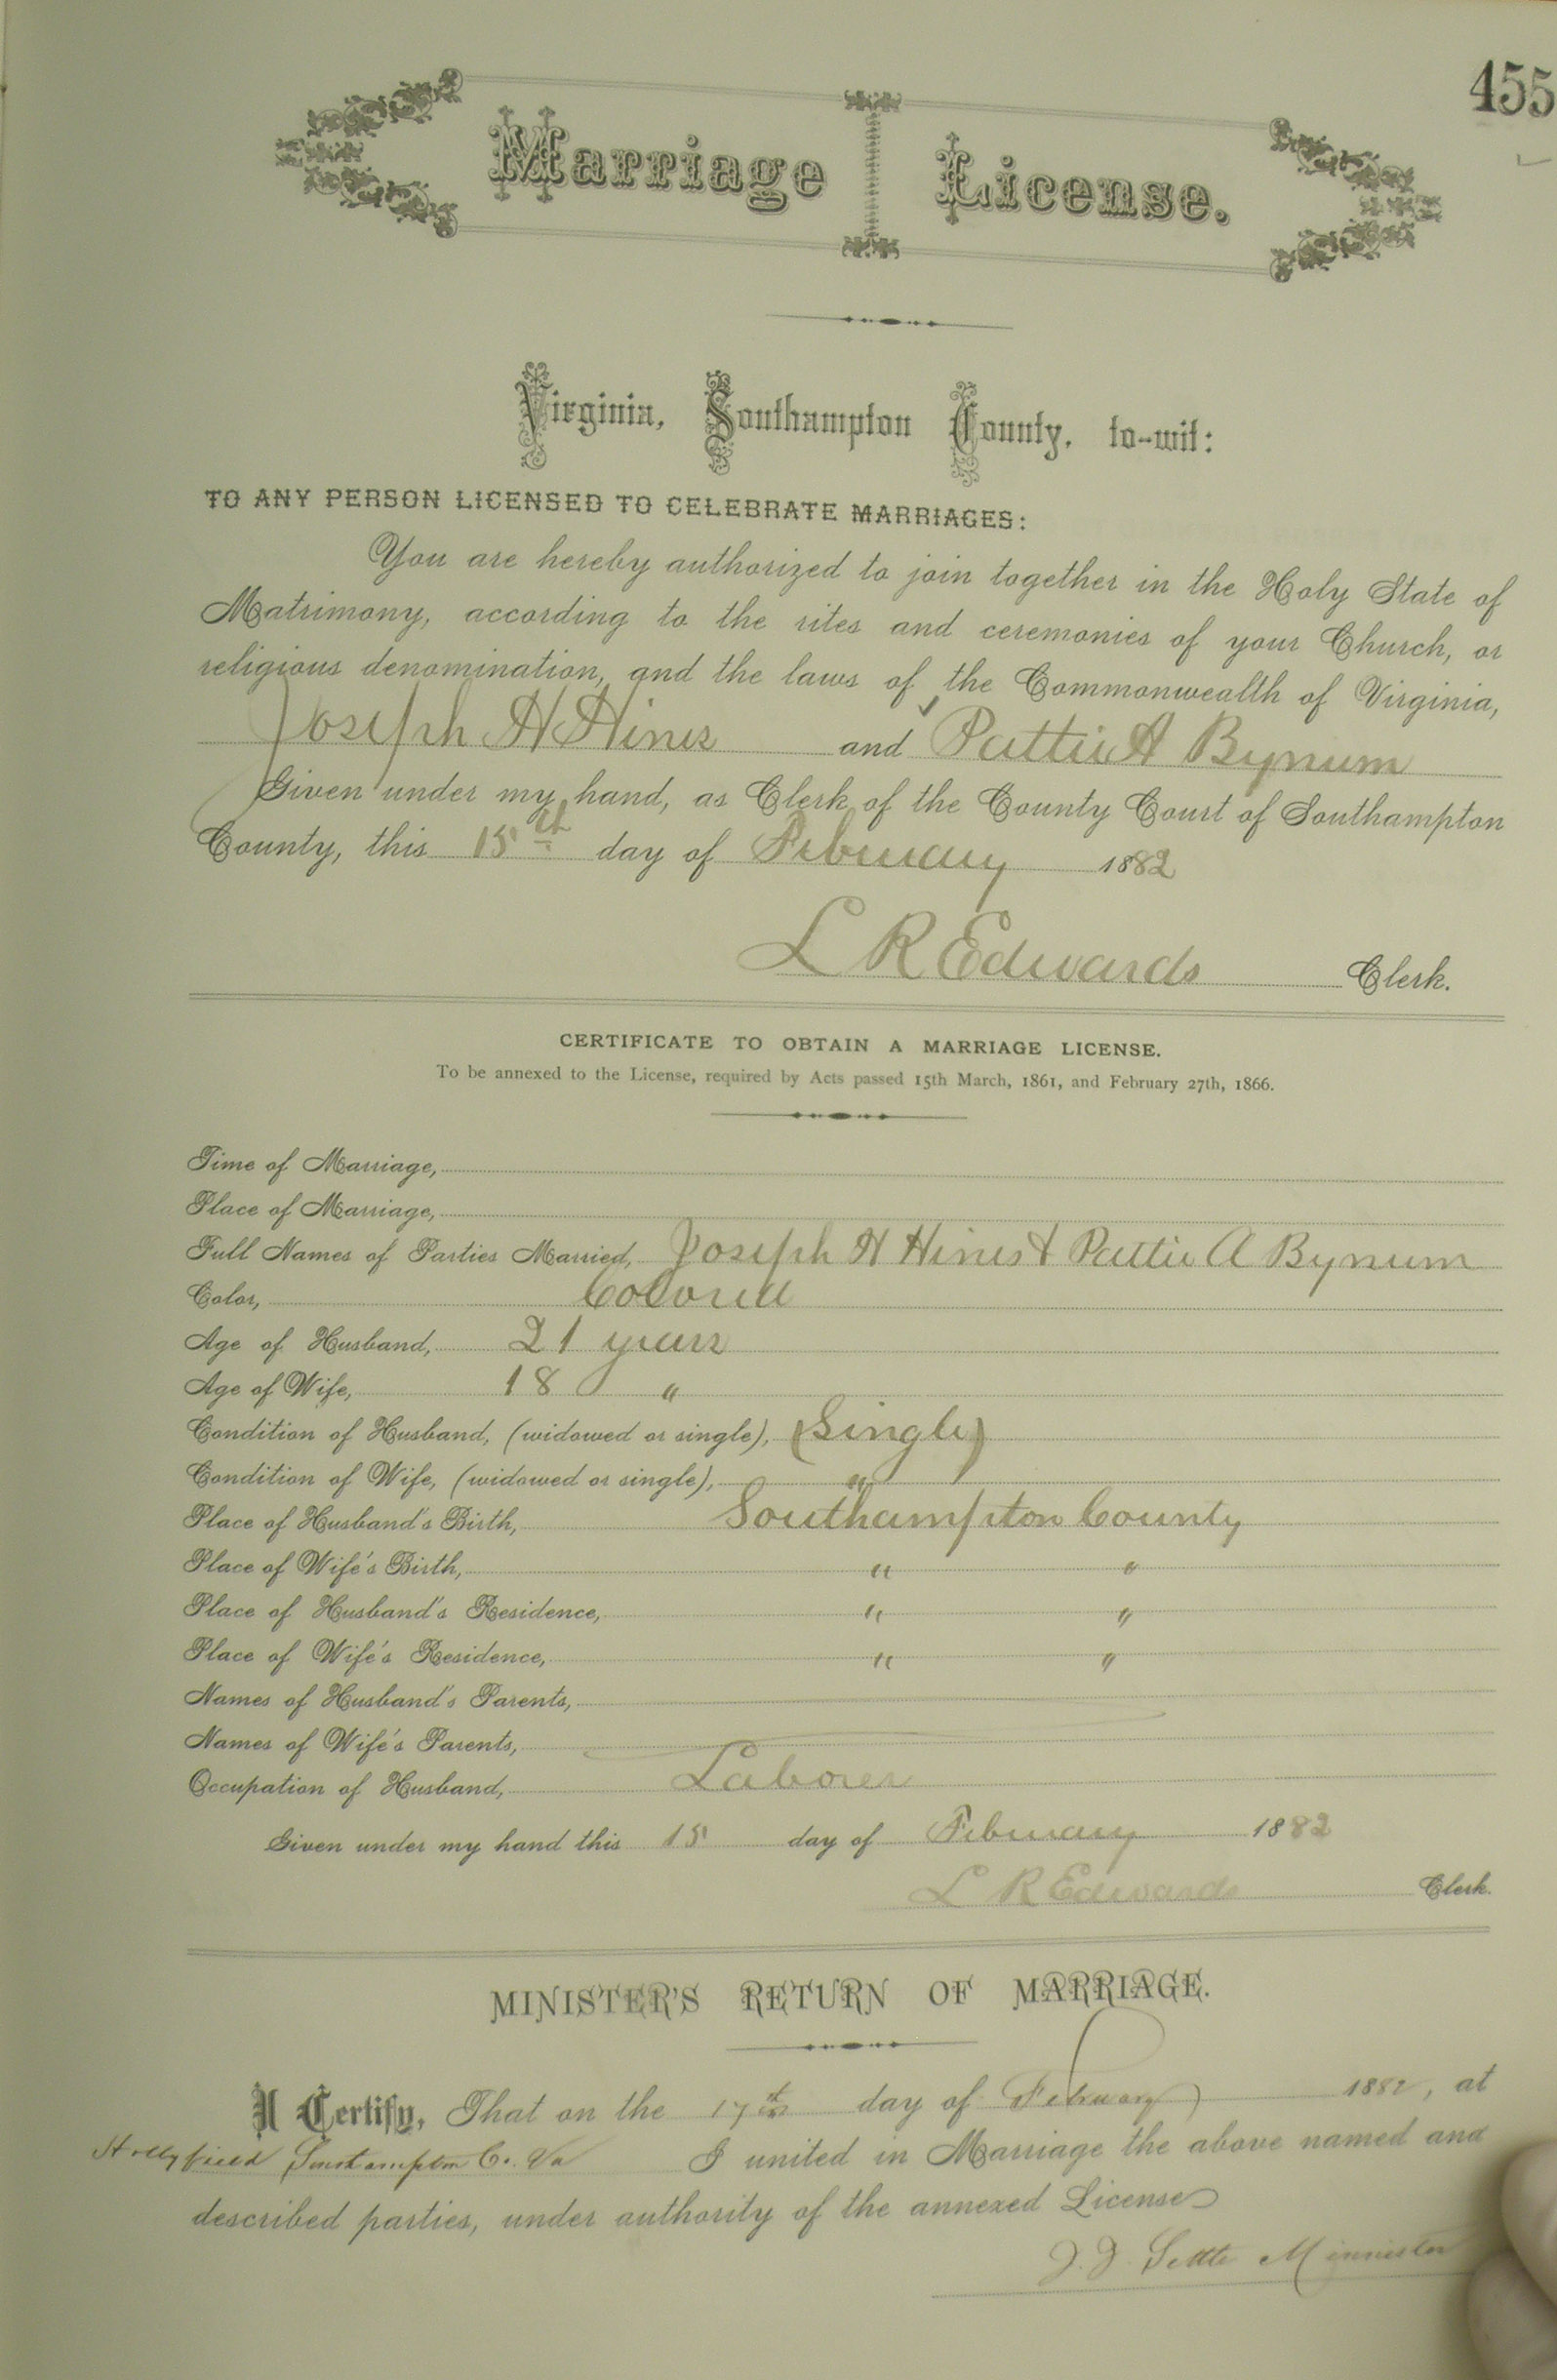 455
Marriage License.
Virginia, Southampton County, to-wit:
TO ANY PERSON LICENSED TO CELEBRATE MARRIAGES:
You are hereby authorized to join together in the Holy State of
Matrimony, according to the rites and ceremonies of your Church, or
religious denomination, and the laws of the Commonwealth of Virginia,
Joseph H Hines and Pattie A Bynum
Given under my hand, as Clerk of the County Court of Southampton
County, this 15th day of February 1882
L R Edwards Clerk.
CERTIFICATE TO OBTAIN A MARRIAGE LICENSE.
To be annexed to the License, required by Acts passed 15th March, 1861, and February 27th, 1866.
Time of Marriage,
Place of Marriage,
Full Names of Parties Married, Joseph H Hines & Pattie A Bynum
Color, Colored
Age of Husband, 21 years
Age of Wife, 18 "
Condition of Husband, (widowed or single), (Single)
Condition of Wife, (widowed or single), "
Place of Husband's Birth, Southampton County
Place of Wife's Birth, " "
Place of Husband's Residence, " "
Place of Wife's Residence, " "
Names of Husband's Parents,
Names of Wife's Parents,
Occupation of Husband, Laborer
Given under my hand this 15 day of February 1882
L R Edwards Clerk.
MINISTER'S RETURN OF MARRIAGE.
I Certify, That on the 17th day of February 1882, at
Hollyfield Southampton Co. Va I united in Marriage the above named and
described parties, under authority of the annexed License
J. J. Settle Minnister